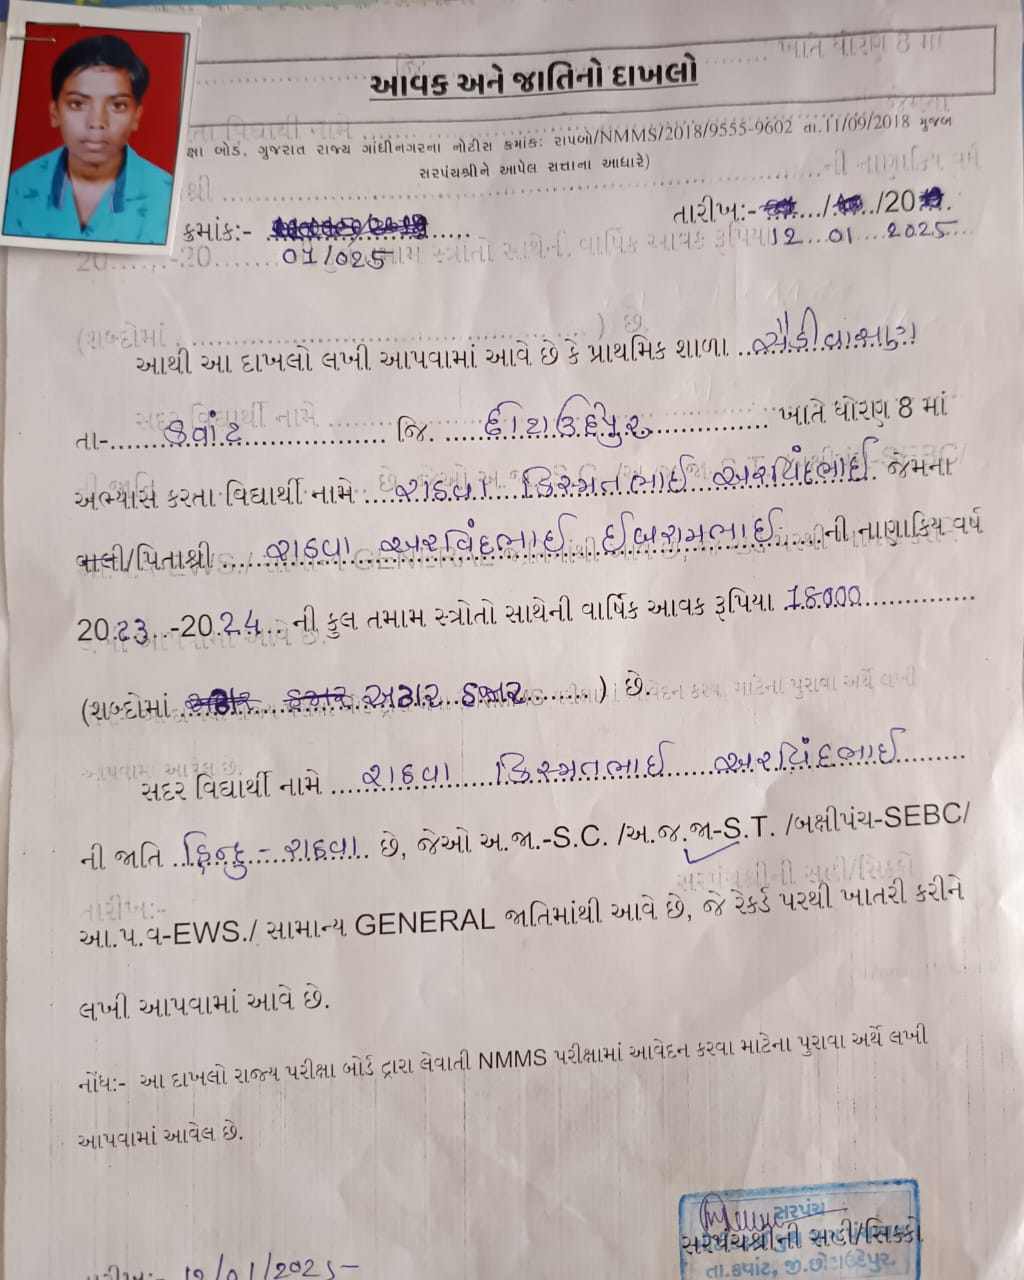 આવક અને જાતિનો દાખલો
ક્ષા બોર્ડ, ગુજરાત રાજ્ય ગાંધીનગરના નોટીસ ક્રમાંક: રાપબો/NMMS/2018/9555-9602 તા.11/09/2018 મુજબ
સરપંચશ્રીને આપેલ સત્તાના આધારે)
તારીખ:- .../.../20...
ક્રમાંક:- ......
12...01...2025...
01/025
આથી આ દાખલો લખી આપવામાં આવે છે કે પ્રાથમિક શાળા
તા-......કવાંટ.................. જિ. ......છોટાઉદેપુર............... ખાતે ધોરણ 8 માં
અભ્યાસ કરતા વિદ્યાર્થી નામે ...રાઠવા...કિસ્મતભાઈ...અરવિંદભાઈ. જેમના
વાલી/પિતાશ્રી ....રાઠવા...અરવિંદભાઈ...ઈબરામભાઈ.....ની નાણાકિય વર્ષ
20.23..-20.24... ની કુલ તમામ સ્ત્રોતો સાથેની વાર્ષિક આવક રૂપિયા 18000..............
(શબ્દોમાં અઢાર...હજાર........) છે.
સદર વિદ્યાર્થી નામે ....રાઠવા....કિસ્મતભાઈ......અરવિંદભાઈ.........
ની જાતિ ..હિન્દુ - રાઠવા.. છે, જેઓ અ.જા.-S.C. /અ.જ.જા-S.T. /બક્ષીપંચ-SEBC/
આ.પ.વ-EWS./ સામાન્ય GENERAL જાતિમાંથી આવે છે, જે રેકર્ડ પરથી ખાતરી કરીને
લખી આપવામાં આવે છે.
નોંધ:- આ દાખલો રાજ્ય પરીક્ષા બોર્ડ દ્વારા લેવાતી NMMS પરીક્ષામાં આવેદન કરવા માટેના પુરાવા અર્થે લખી
આપવામાં આવેલ છે.
સરપંચ
સરપંચશ્રીની સહી/સિક્કો
તા.કવાંટ, જી.છોટાઉદેપુર.
તારીખ:- 12/01/2025